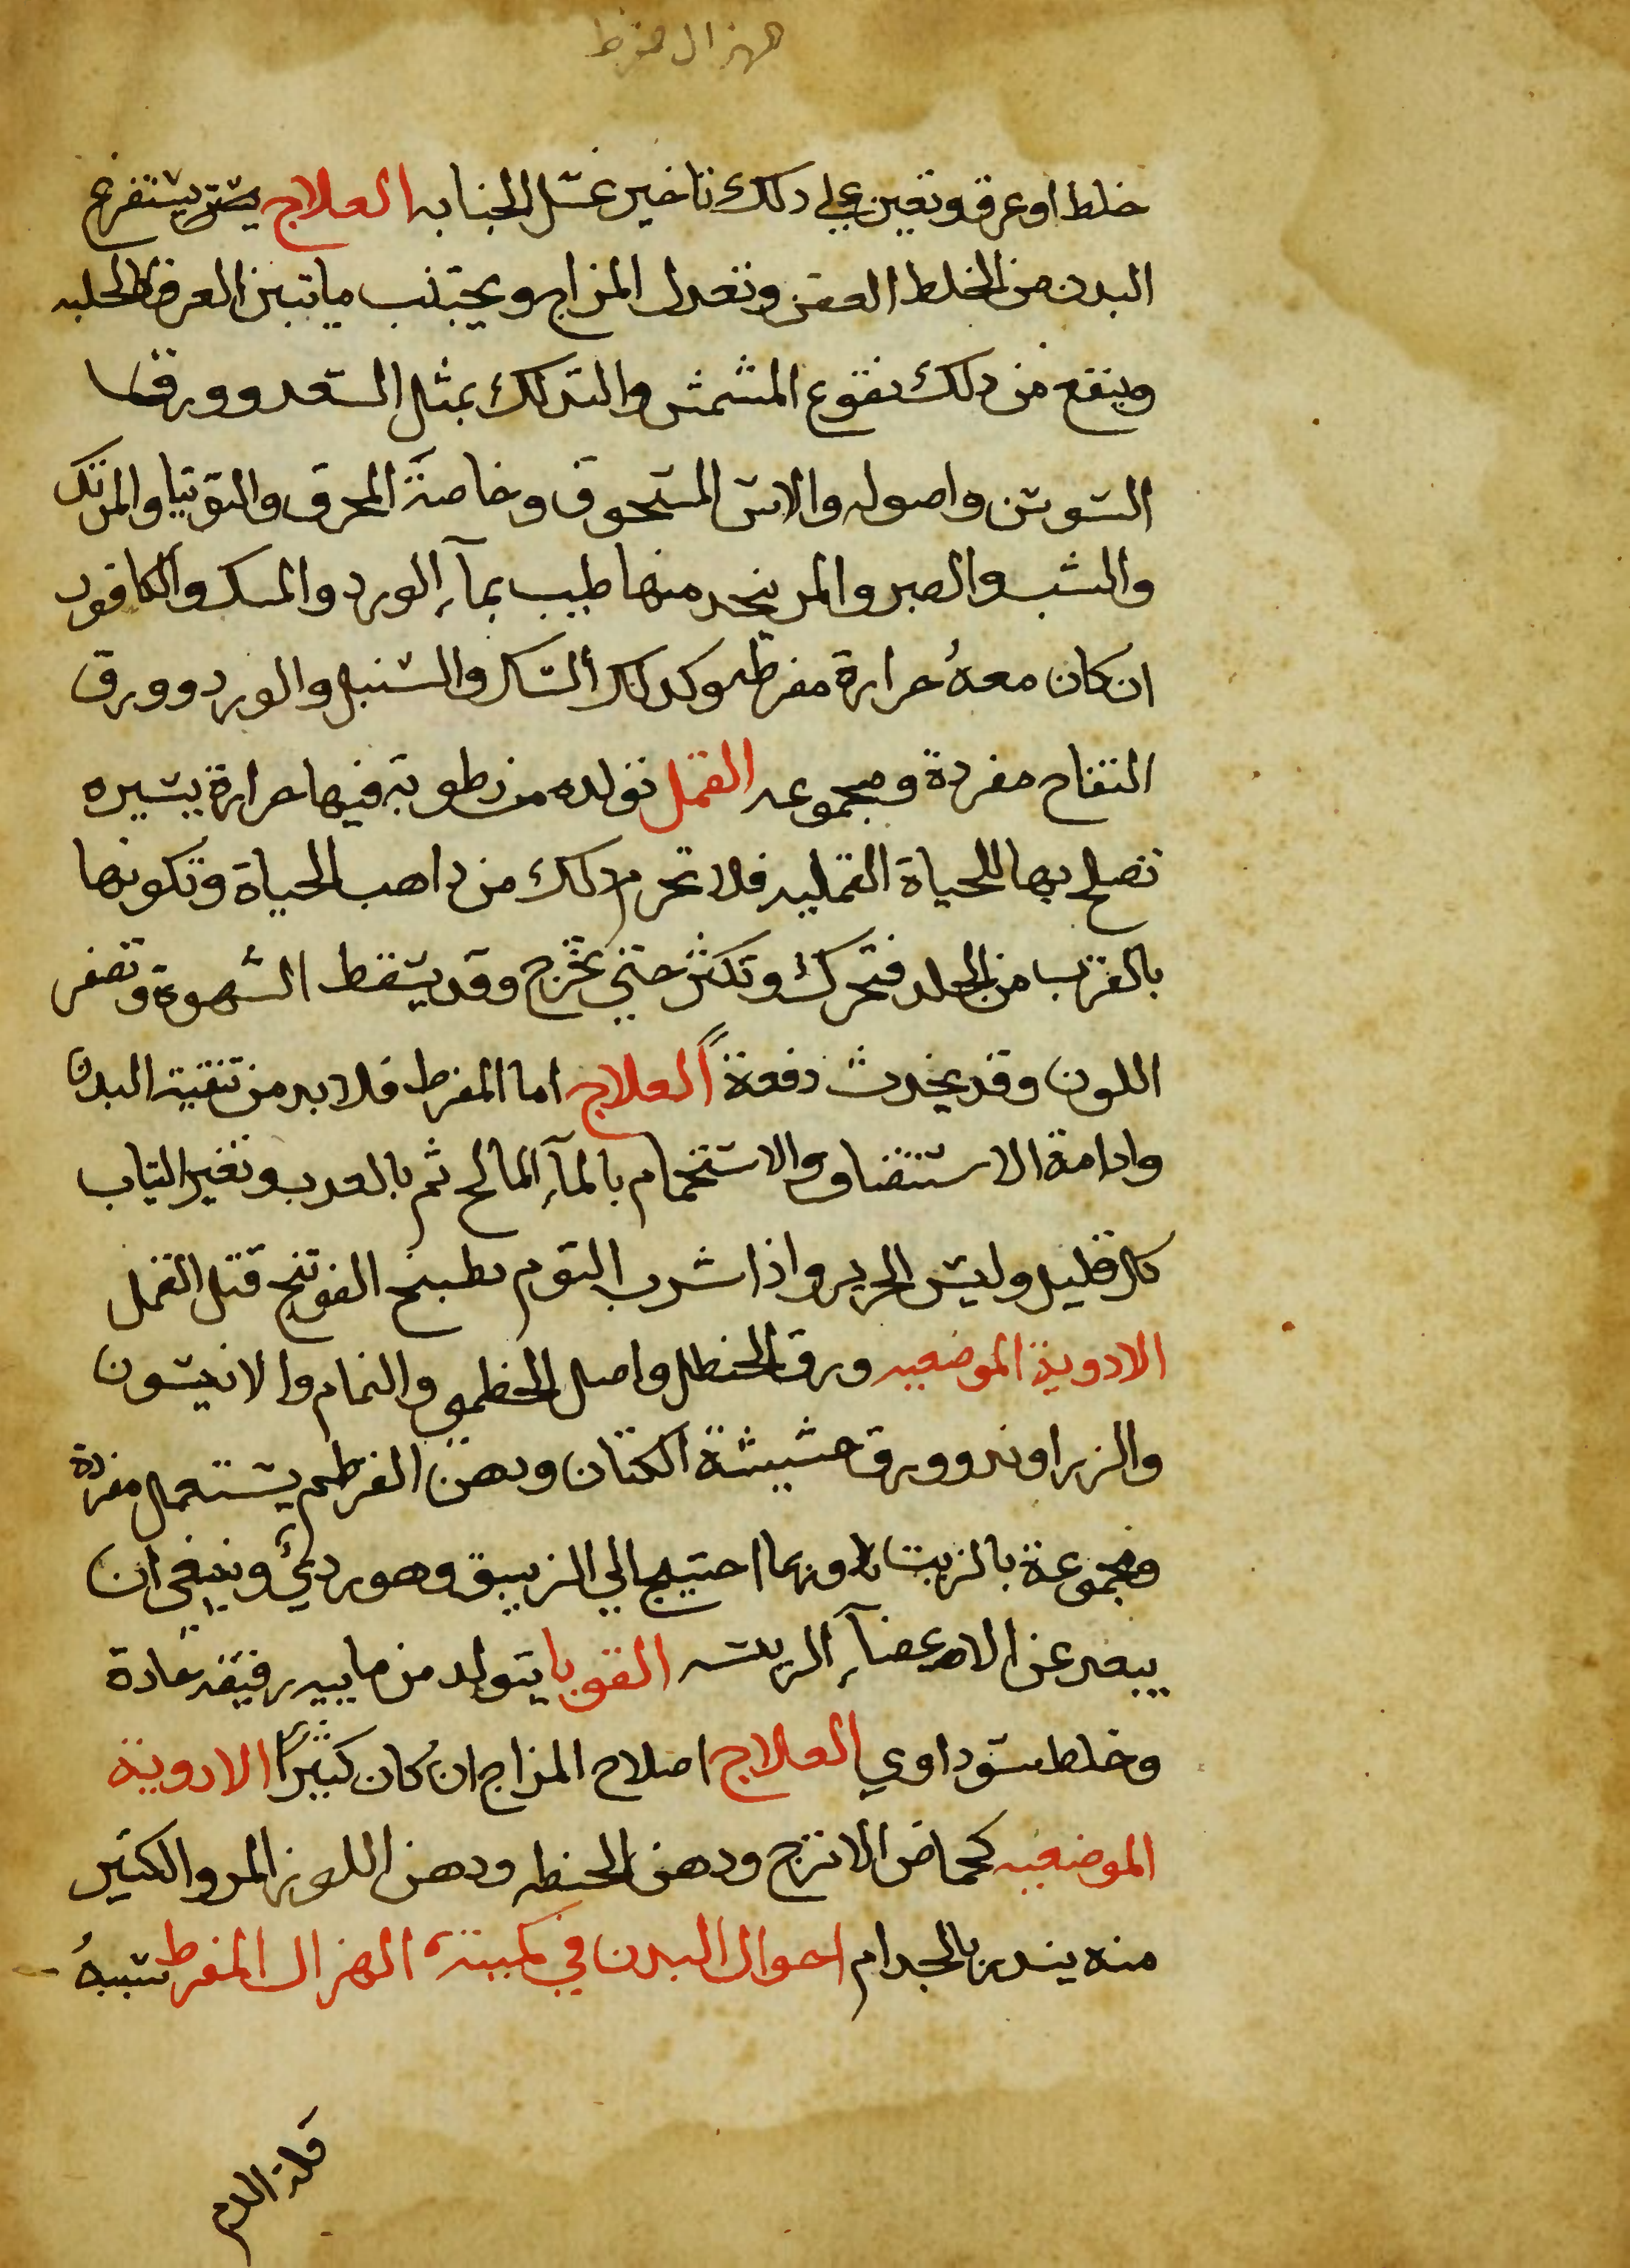 هزال مفرط
خلط او عرق وتعين علي دلك تاخير غسل الجنابه العلاج يستفرغ
البدن من الخلط العفن وتعدل المزاج ويجتنب ماتبين العرق كالحلبه
وينفع من دلك نقوع المشمش والتدلك بمثل السعد وورق
السوسن واصوله والاس المسحوق وخاصة المحرق والتوتيا والمرتك
والشب والصبر والمر يتخد منها طيب بمآء الورد والمسك والكافور
ان كان معهُ حرارة مفرطه وكدلك السك والسنبل والورد وورق
التفاح مفردة ومجموعه القمل تولده من رطوبة فيها حرارة يسيره
تصلح بها للحياة القمليه فلا تحرم دلك من واهب الحياة وتكونها
بالقرب من الجلد فتحرك وتكثر حتي تخرج وقد يسقط الشهوة وتصفر
اللون وقد يحدث دفعةً العلاج اما المفرط فلا بد من تنقية البدن
وادامة الاستنضاف والاستحمام بالمآء المالح ثم بالعدب وتغير التياب
كل قليل ولبس الحرير واذا شرب التوم بطبيخ الفوتنج قتل القمل
الادوية الموضعيه ورق الحنظل واصل الخطمي والنمام والانيسون
والزراوند وورق حشيشة الكتان ودهن القرطم يستعمل مفردة
ومجموعة بالزيت وربما احتيج الي الزيبق وهو رديٌ وينبغي ان
يبعد عن الاعضآء الريسه القوبا يتولد من ماييه رقيقه حادة
وخلط سوداوي العلاج اصلاح المزاج ان كان كثيرًا الادوية
الموضعيه كحماض الاترج ودهن الحنطه ودهن اللوز المر والكثير
منه يندر بالجدام احوال البدن في كميته الهزال المفرط سببهُ
قلة الدم